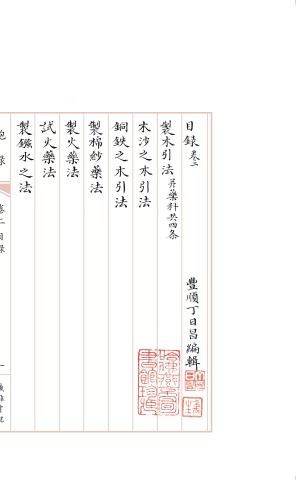 目錄卷二
豐順丁日昌編輯
製木引法 并藥料共四条
木沙之木引法
銅鉄之木引法
製棉紗藥法
製火藥法
試火藥法
製鏹水之法
卷二目錄
一